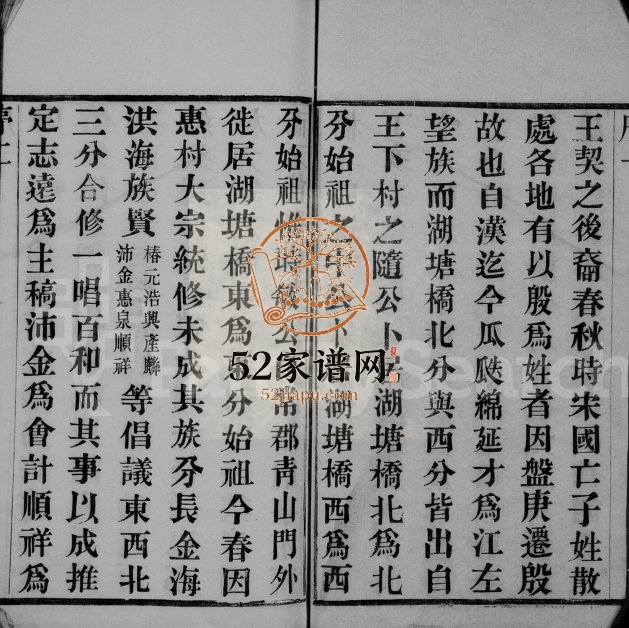 王契之後裔春秋時宋國亡子姓散
處各地有以殷為姓者因盤庚遷殷
故也自漢迄今瓜瓞綿延才為江左
望族而湖塘橋北分與西分皆出自
王下村之隨公卜居湖塘橋北為北
分始祖之中公卜湖塘橋西為西
分始祖惟公常郡青山門外
徙居湖塘橋東為分始祖今春因
惠村大宗統修未成其族分長金海
洪海族賢椿元浩興產聯沛金惠泉順祥等倡議東西北
三分合修一唱百和而其事以成推
定志達為主稿沛金為會計順祥為
52家谱网
52jiapu.com